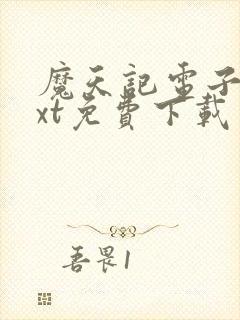 魔天記电子
xt免費下載
吾畏1